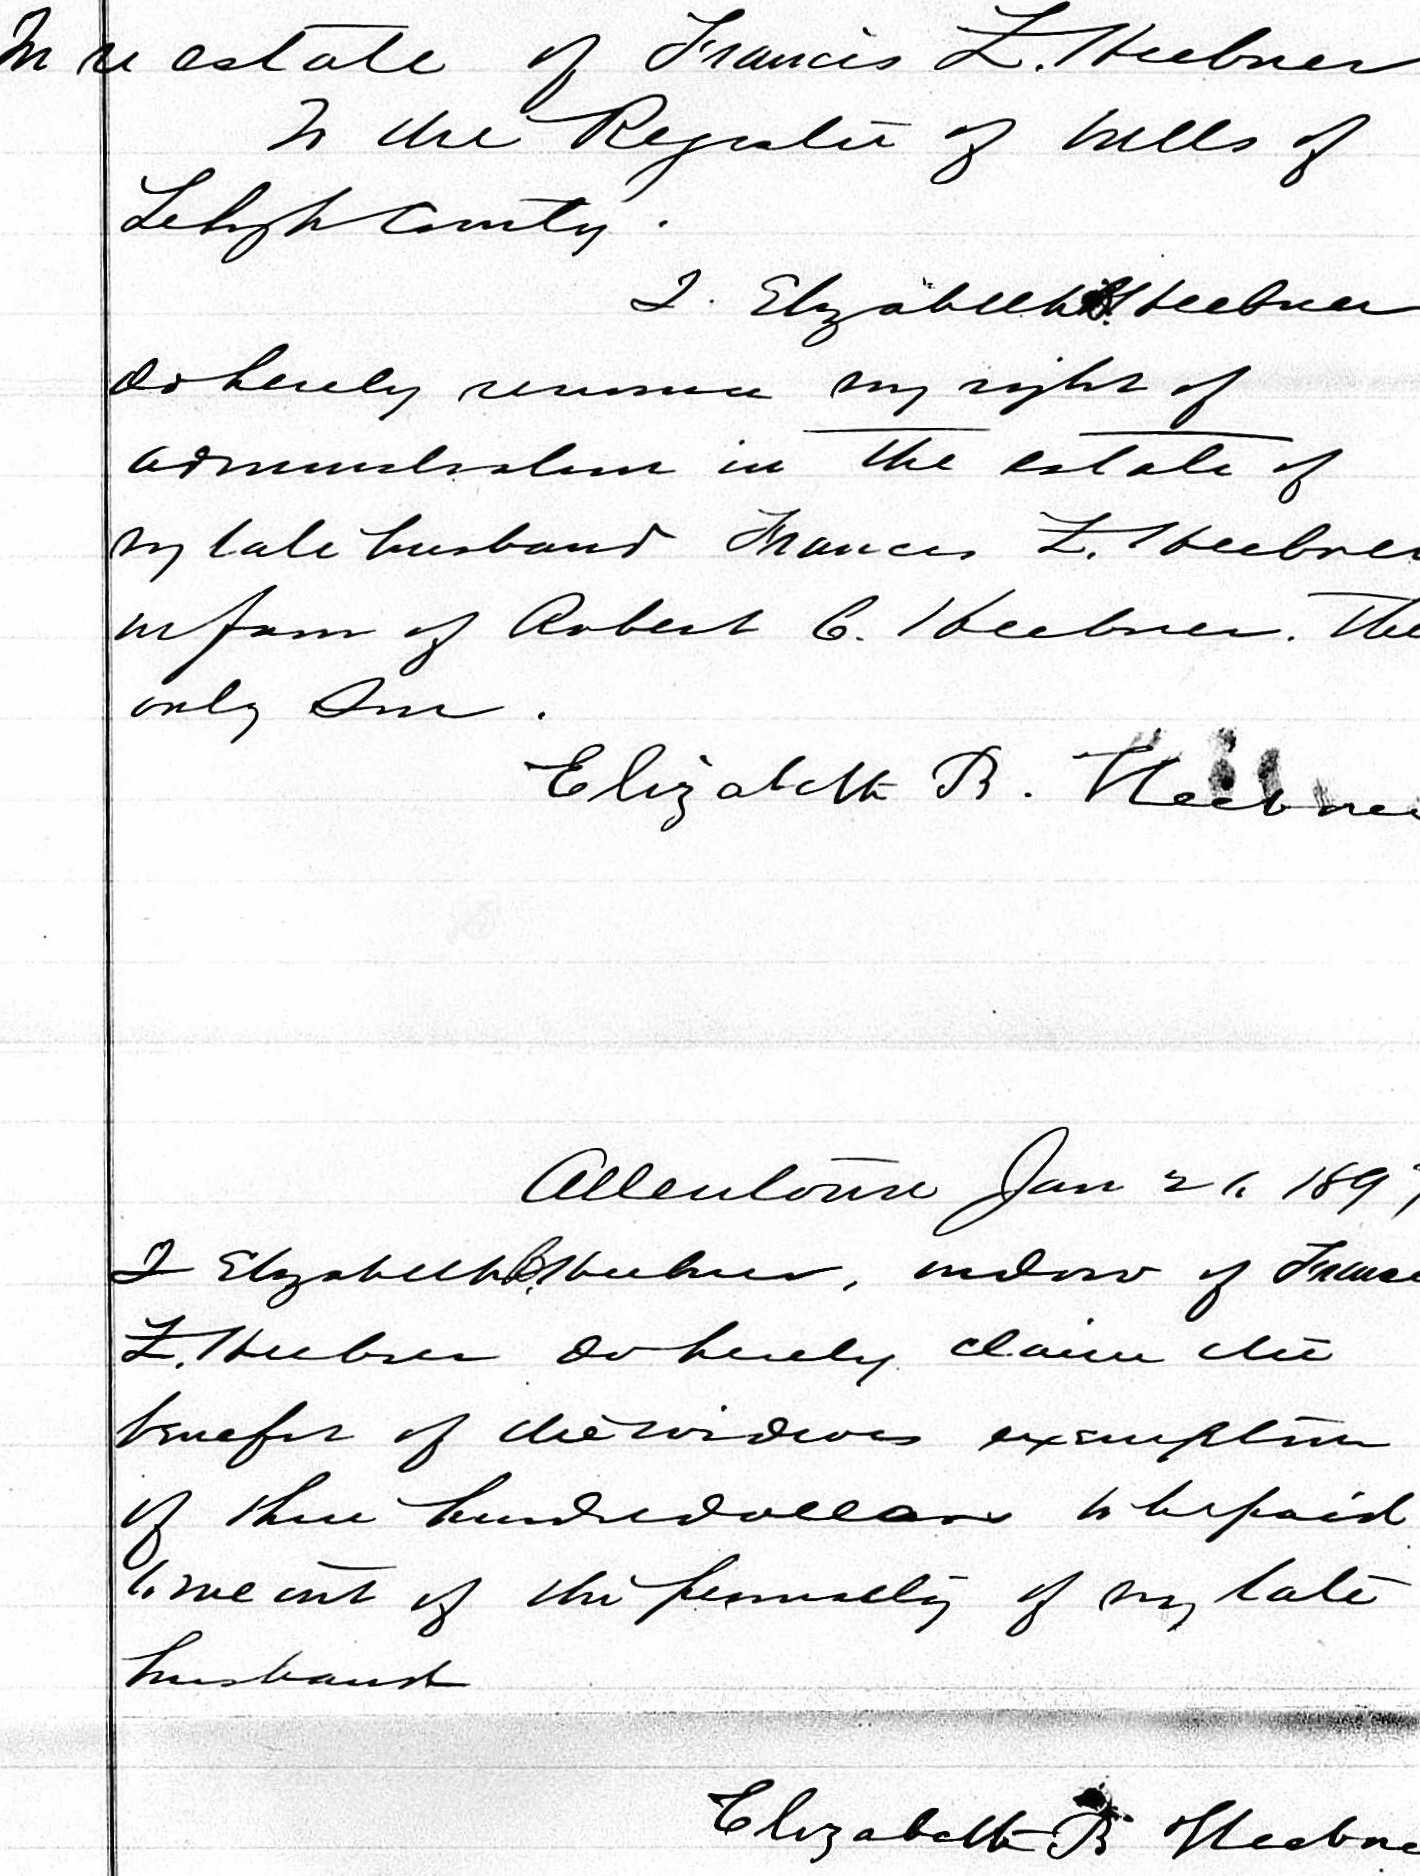 In re estate of Francis Z. Heebner
To the Register of Wills of
Lehigh County.
I. Elizabeth B. Heebner
do hereby renounce my right of
administration in the estate of
my late husband Francis Z. Heebner
in favor of Robert C. Heebner. The
only son.
Elizabeth B. Heebner
Allentown Jan 26. 1897
I Elizabeth B. Heebner, widow of Francis
Z. Heebner do hereby claim the
benefit of the widows exemption
of three hundred dollars to be paid
to me out of the personalty of my late
husband
Elizabeth B Heebne